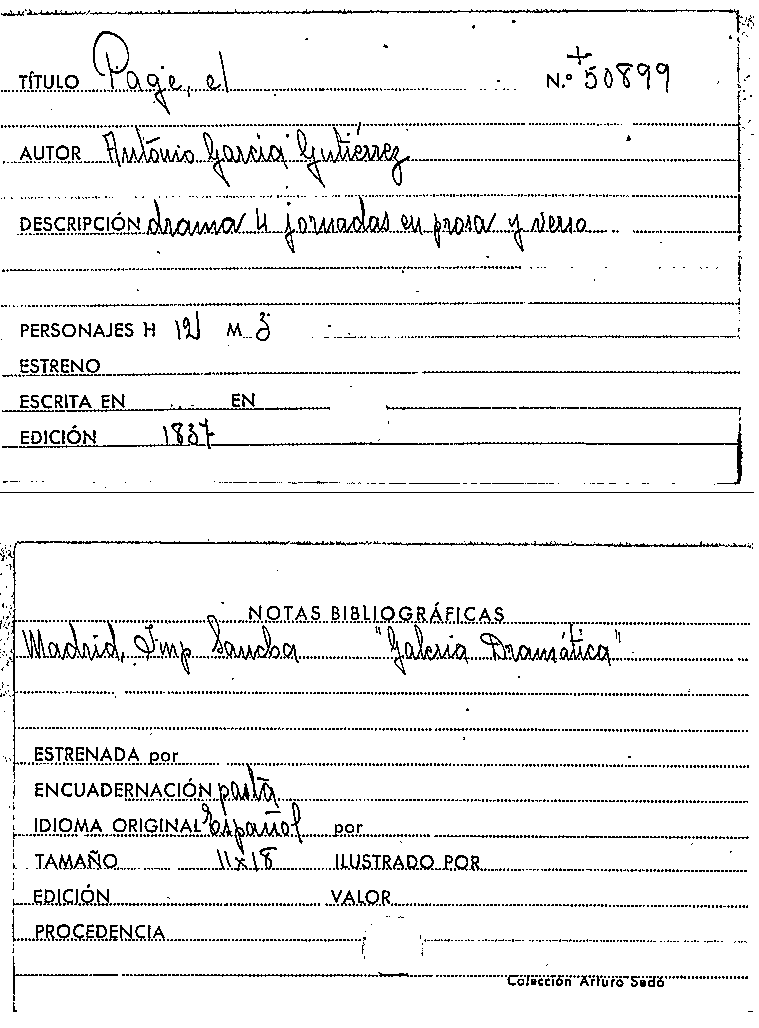 TÍTULO Page, el N.º + 50899
AUTOR Antonio García Gutiérrez
DESCRIPCIÓN drama 4 jornadas en prosa y verso
PERSONAJES H 12 M 3
ESTRENO
ESCRITA EN EN
EDICIÓN 1837
NOTAS BIBLIOGRÁFICAS
Madrid, Imp Sancha "Galeria Dramática"
ESTRENADA por
ENCUADERNACIÓN pasta
IDIOMA ORIGINAL Español por
TAMAÑO 11x18 ILUSTRADO POR
EDICIÓN VALOR
PROCEDENCIA
Colección Arturo Sedó